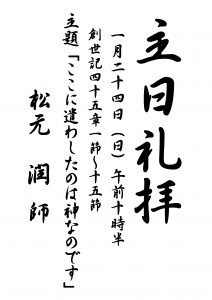 主日礼拝
一月二十四日（日）午前十時半
創世記四十五章一節～十五節
主題「ここに遣わしたのは神なのです」
松元　潤　師